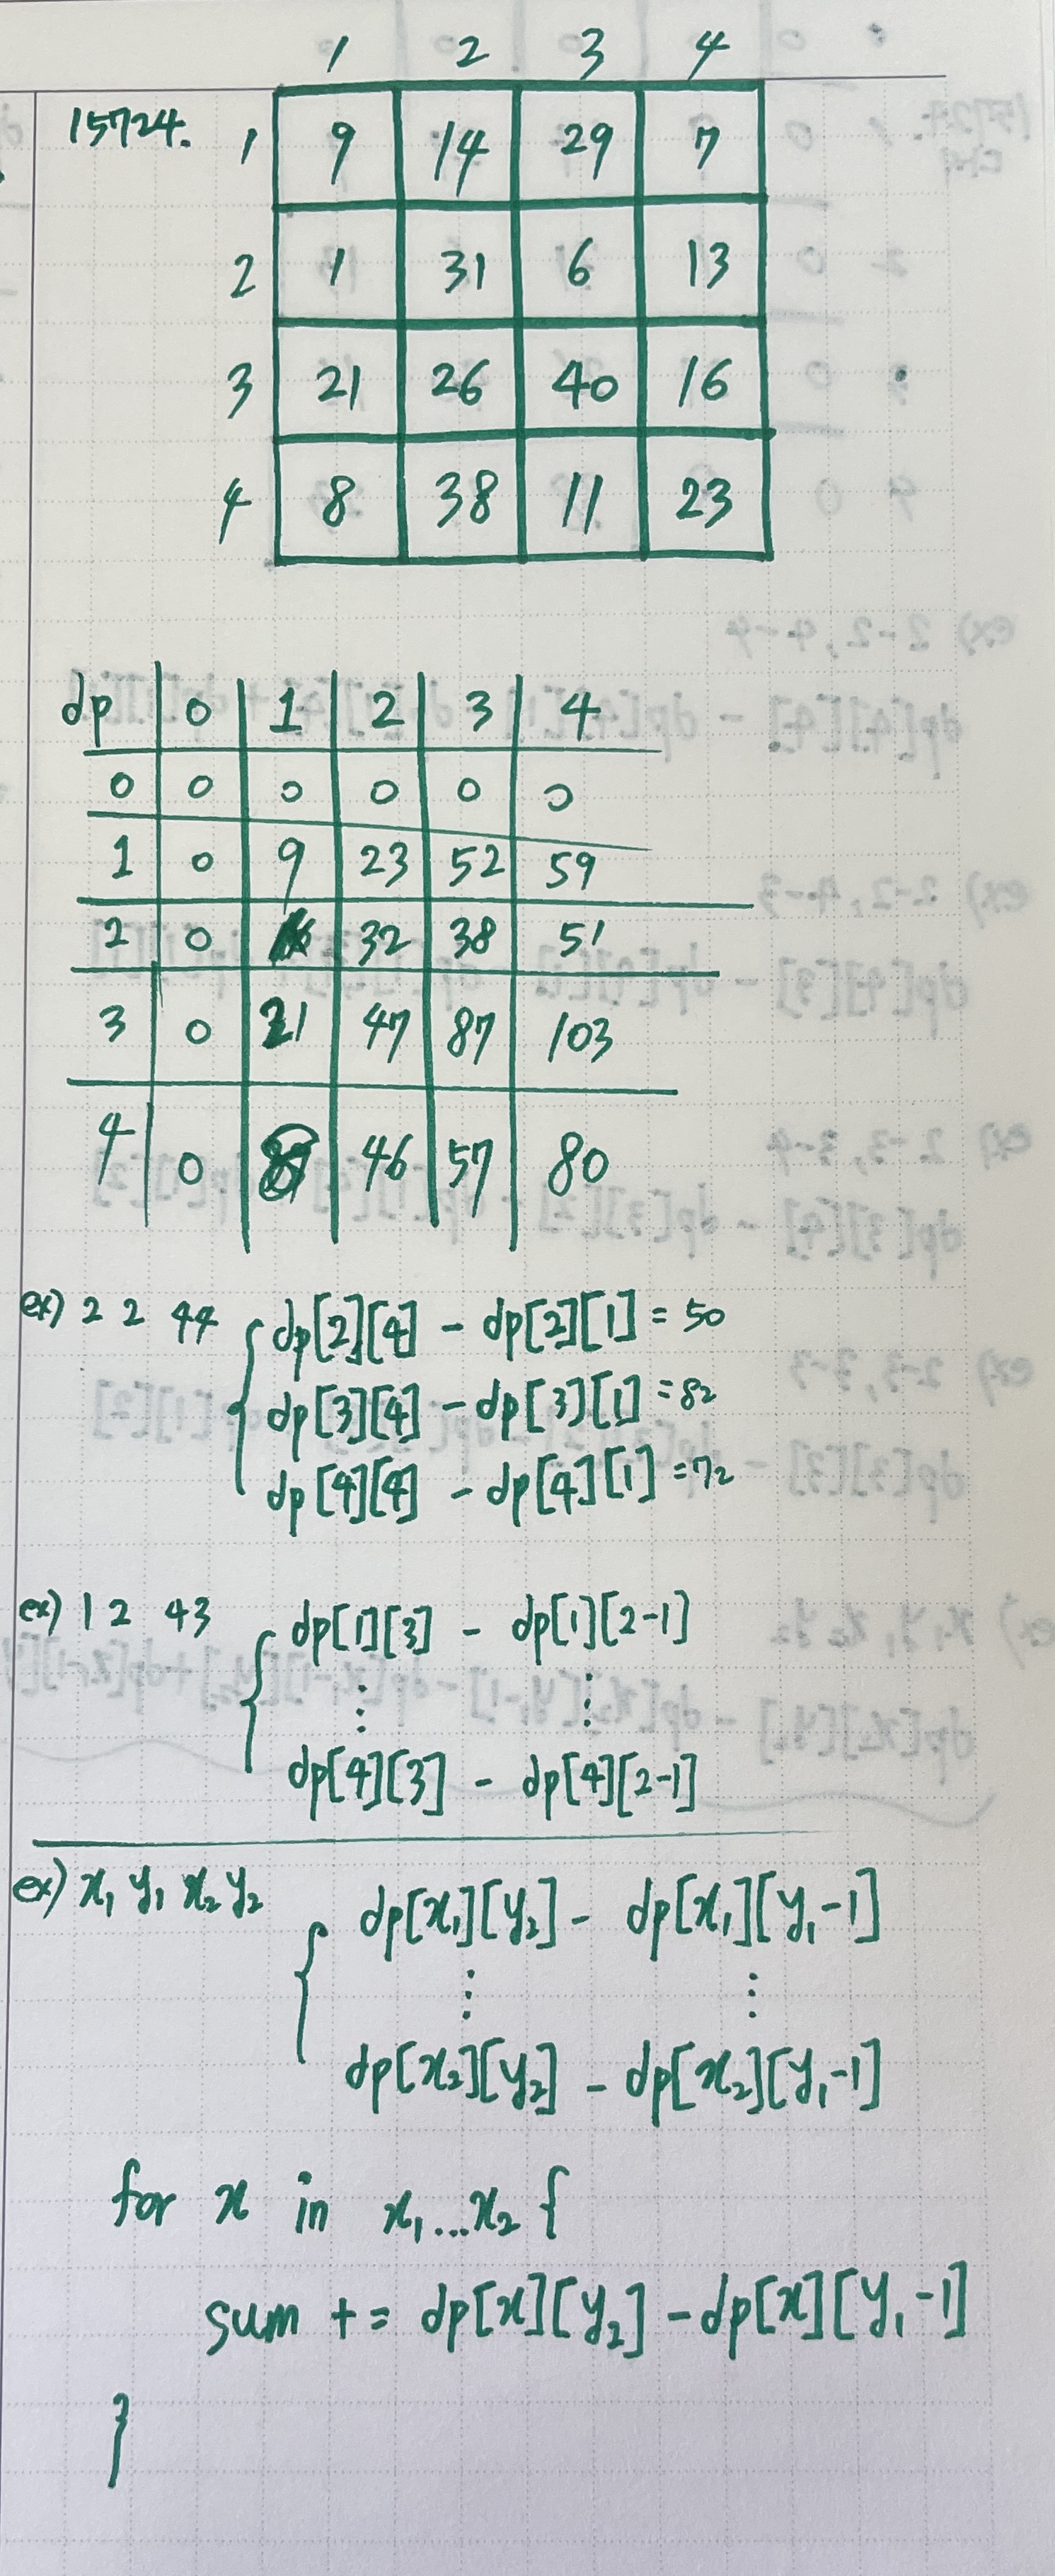 1 2 3 4
15724. 1 9 14 29 7
2 1 31 6 13
3 21 26 40 16
4 8 38 11 23
dp 0 1 2 3 4
0 0 0 0 0 0
1 0 9 23 52 59
2 0 32 38 51
3 0 21 47 87 103
4 0 46 57 80
ex) 2 2 4 4 { dp[2][4] - dp[2][1] = 50
dp[3][4] - dp[3][1] = 82
dp[4][4] - dp[4][1] = 72
ex) 1 2 4 3 { dp[1][3] - dp[1][2-1]
⋮ ⋮
dp[4][3] - dp[4][2-1]
ex) x₁ y₁ x₂ y₂ { dp[x₁][y₂] - dp[x₁][y₁-1]
⋮ ⋮
dp[x₂][y₂] - dp[x₂][y₁-1]
for x in x₁...x₂ {
sum += dp[x][y₂] - dp[x][y₁-1]
}